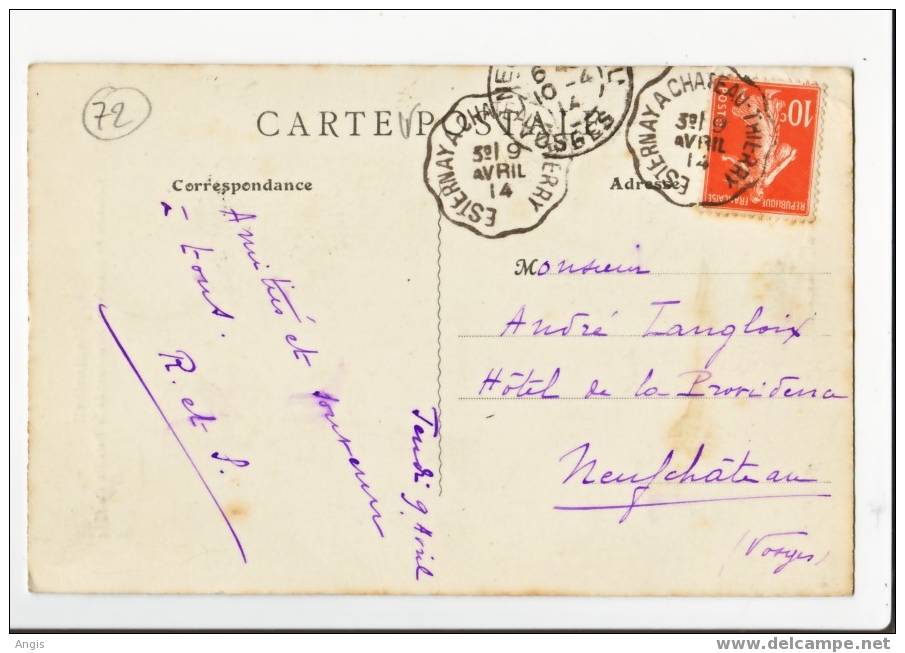 72
CARTE POSTALE
Correspondance
Adresse
ESTERNAY A CHATEAU-THIERRY
3º 9
AVRIL
14
ESTERNAY A CHATEAU-THIERRY
3º 9
AVRIL
14
10-4
14
VOSGES
10c
POSTES
REPUBLIQUE FRANÇAISE
Amitiés et souvenir
à tous.
R. et S.
Jeudi 9 Avril
Monsieur
André Langloix
Hôtel de la Providence
Neufchâteau
(Vosges)
Angis
www.delcampe.net